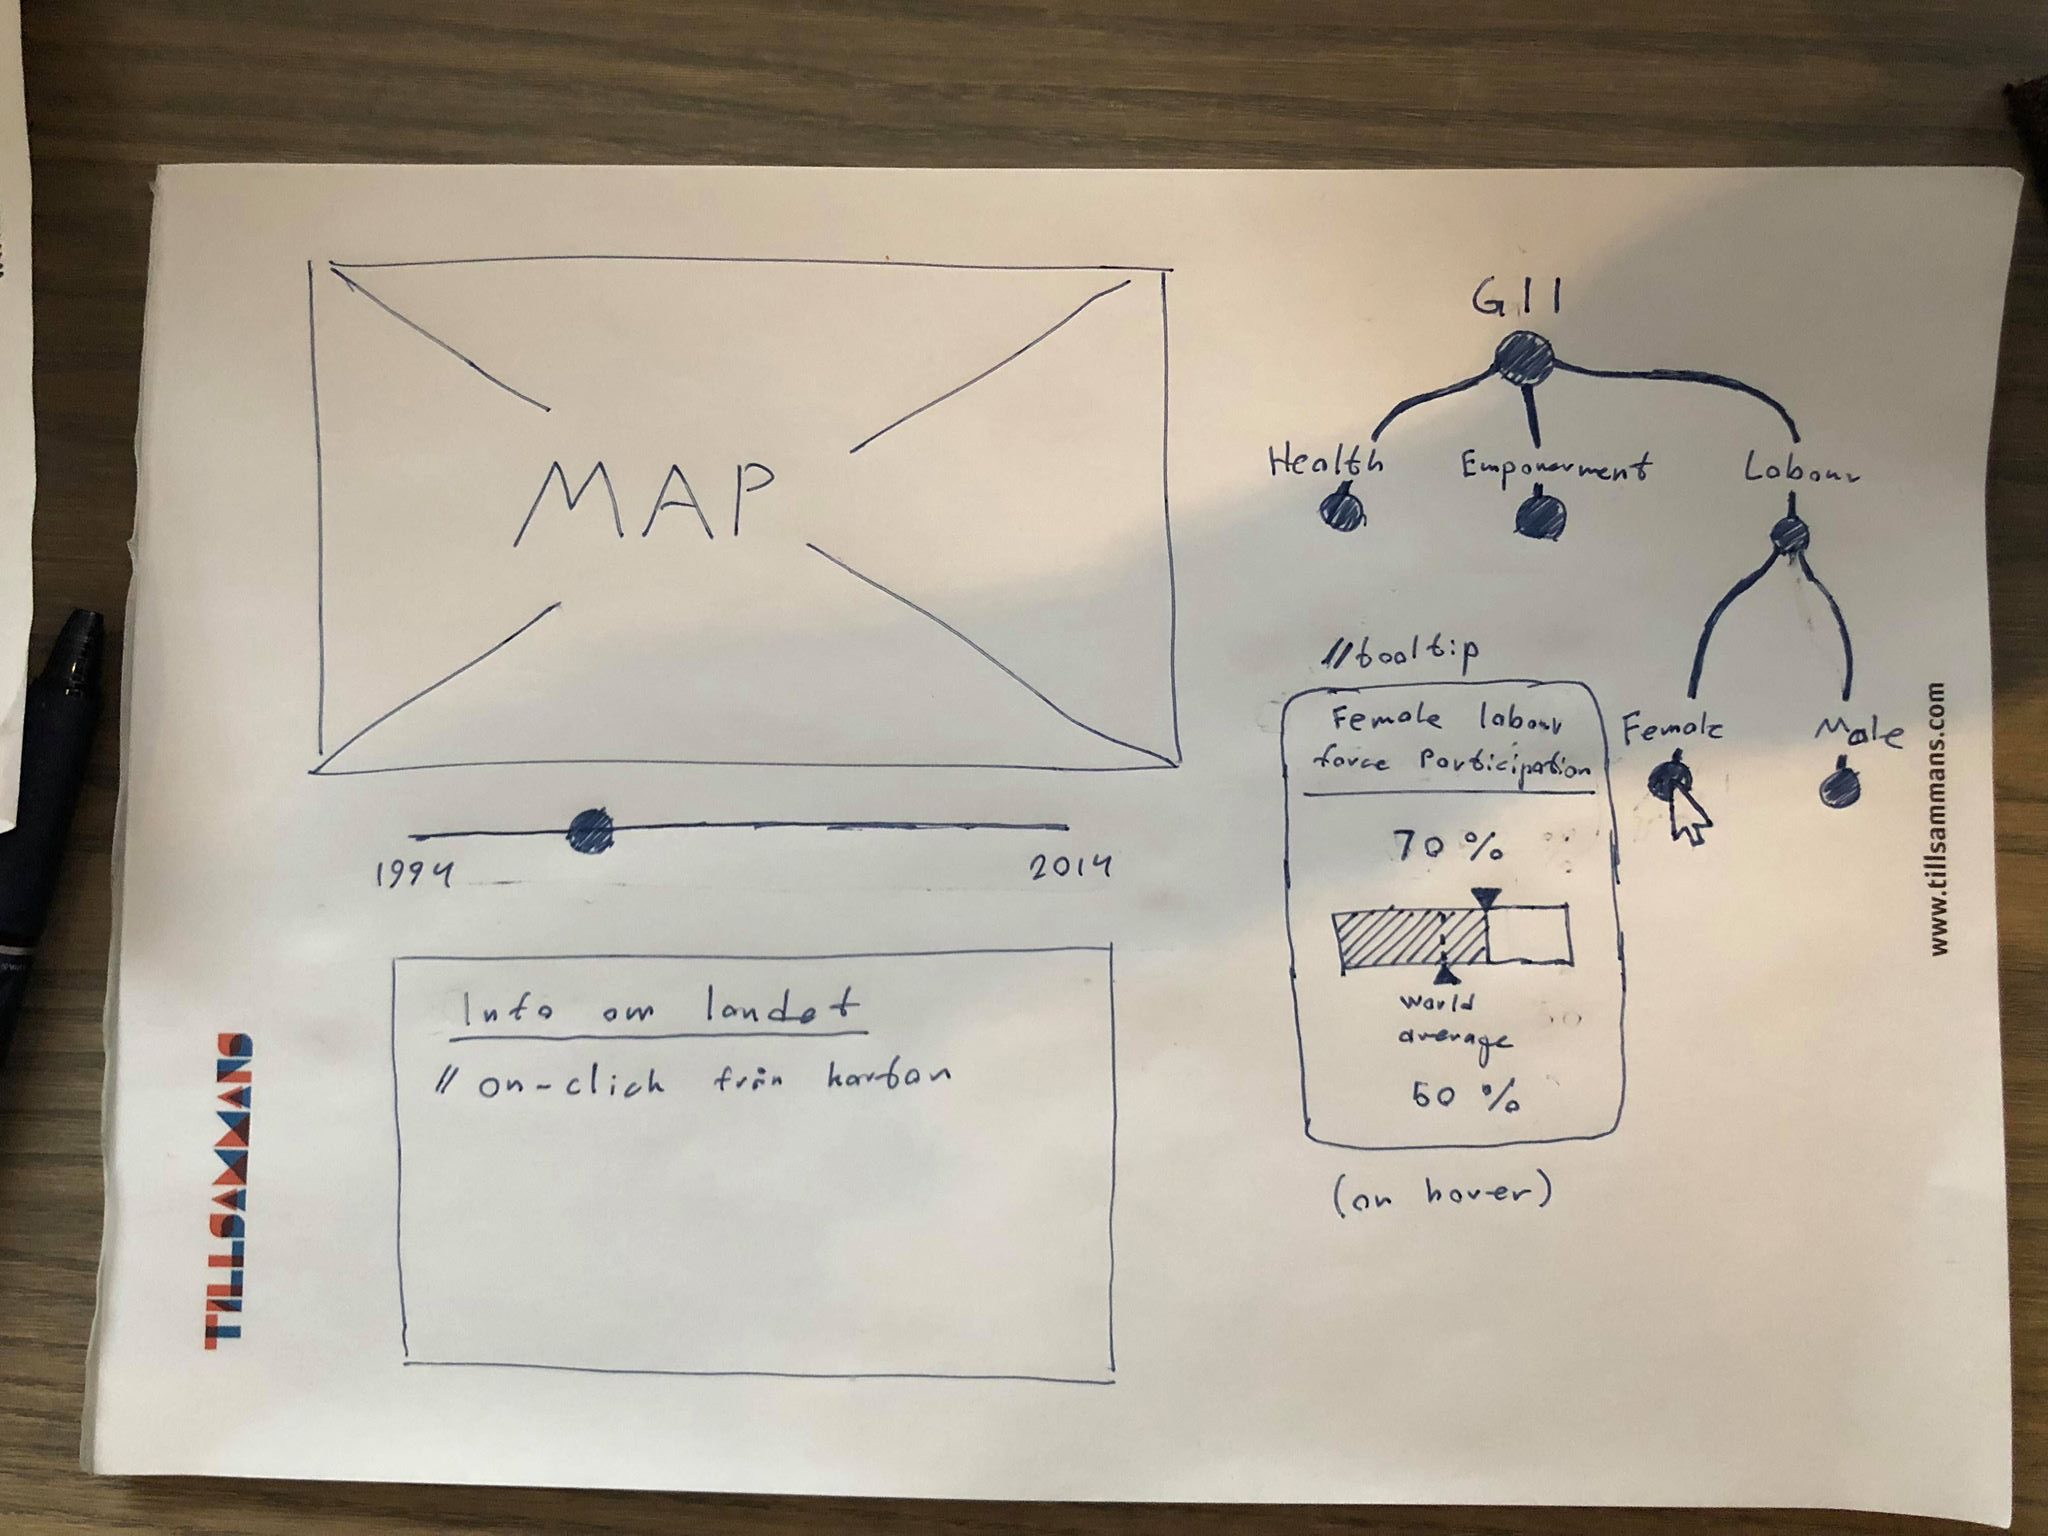 MAP
1994
2014
Info om landet
// on-click från kartan
GII
Health
Empowerment
Labour
Female
Male
//tooltip
Female labour
force Participation
70 %
World
average
50 %
(on hover)
TILLSAMMANS
www.tillsammans.com